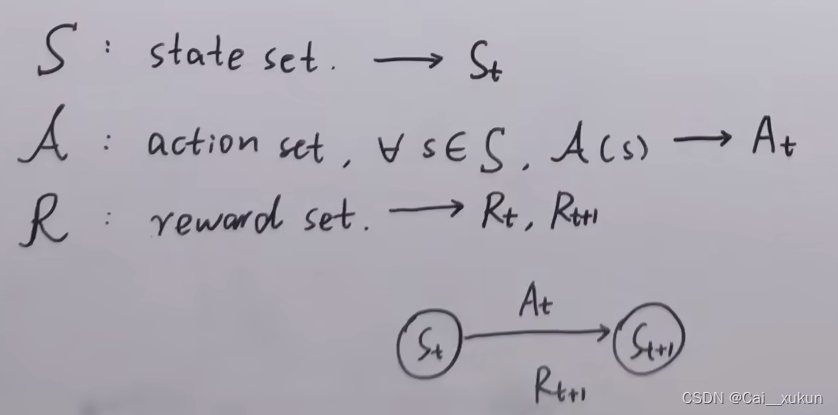 S : state set. → St
A : action set, ∀ s∈S, A(s) → At
R : reward set. → Rt, Rt+1
At
St → St+1
Rt+1
CSDN @Cai__xukun